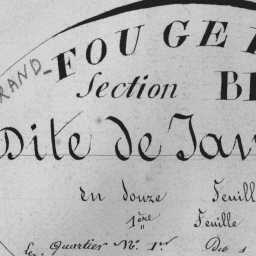 GRAND-FOUGE
Section B
Dite de Jav
En douze Feuill
1ère Feuille
Quartier No. 1er Du